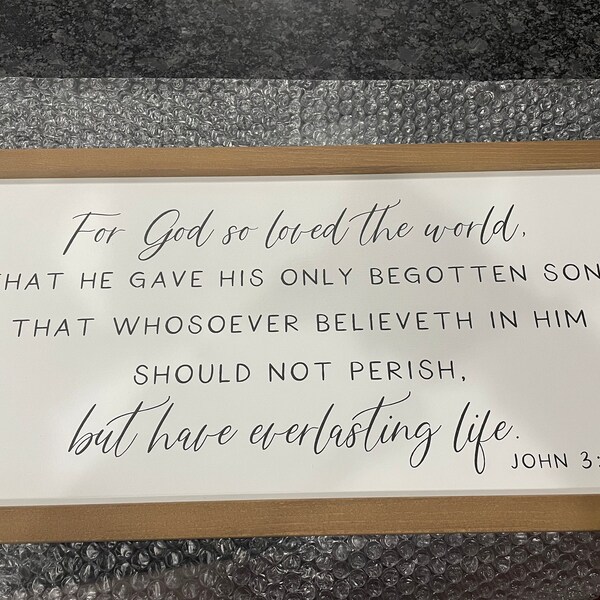 For God so loved the world,
THAT HE GAVE HIS ONLY BEGOTTEN SON
THAT WHOSOEVER BELIEVETH IN HIM
SHOULD NOT PERISH,
but have everlasting life.
JOHN 3: